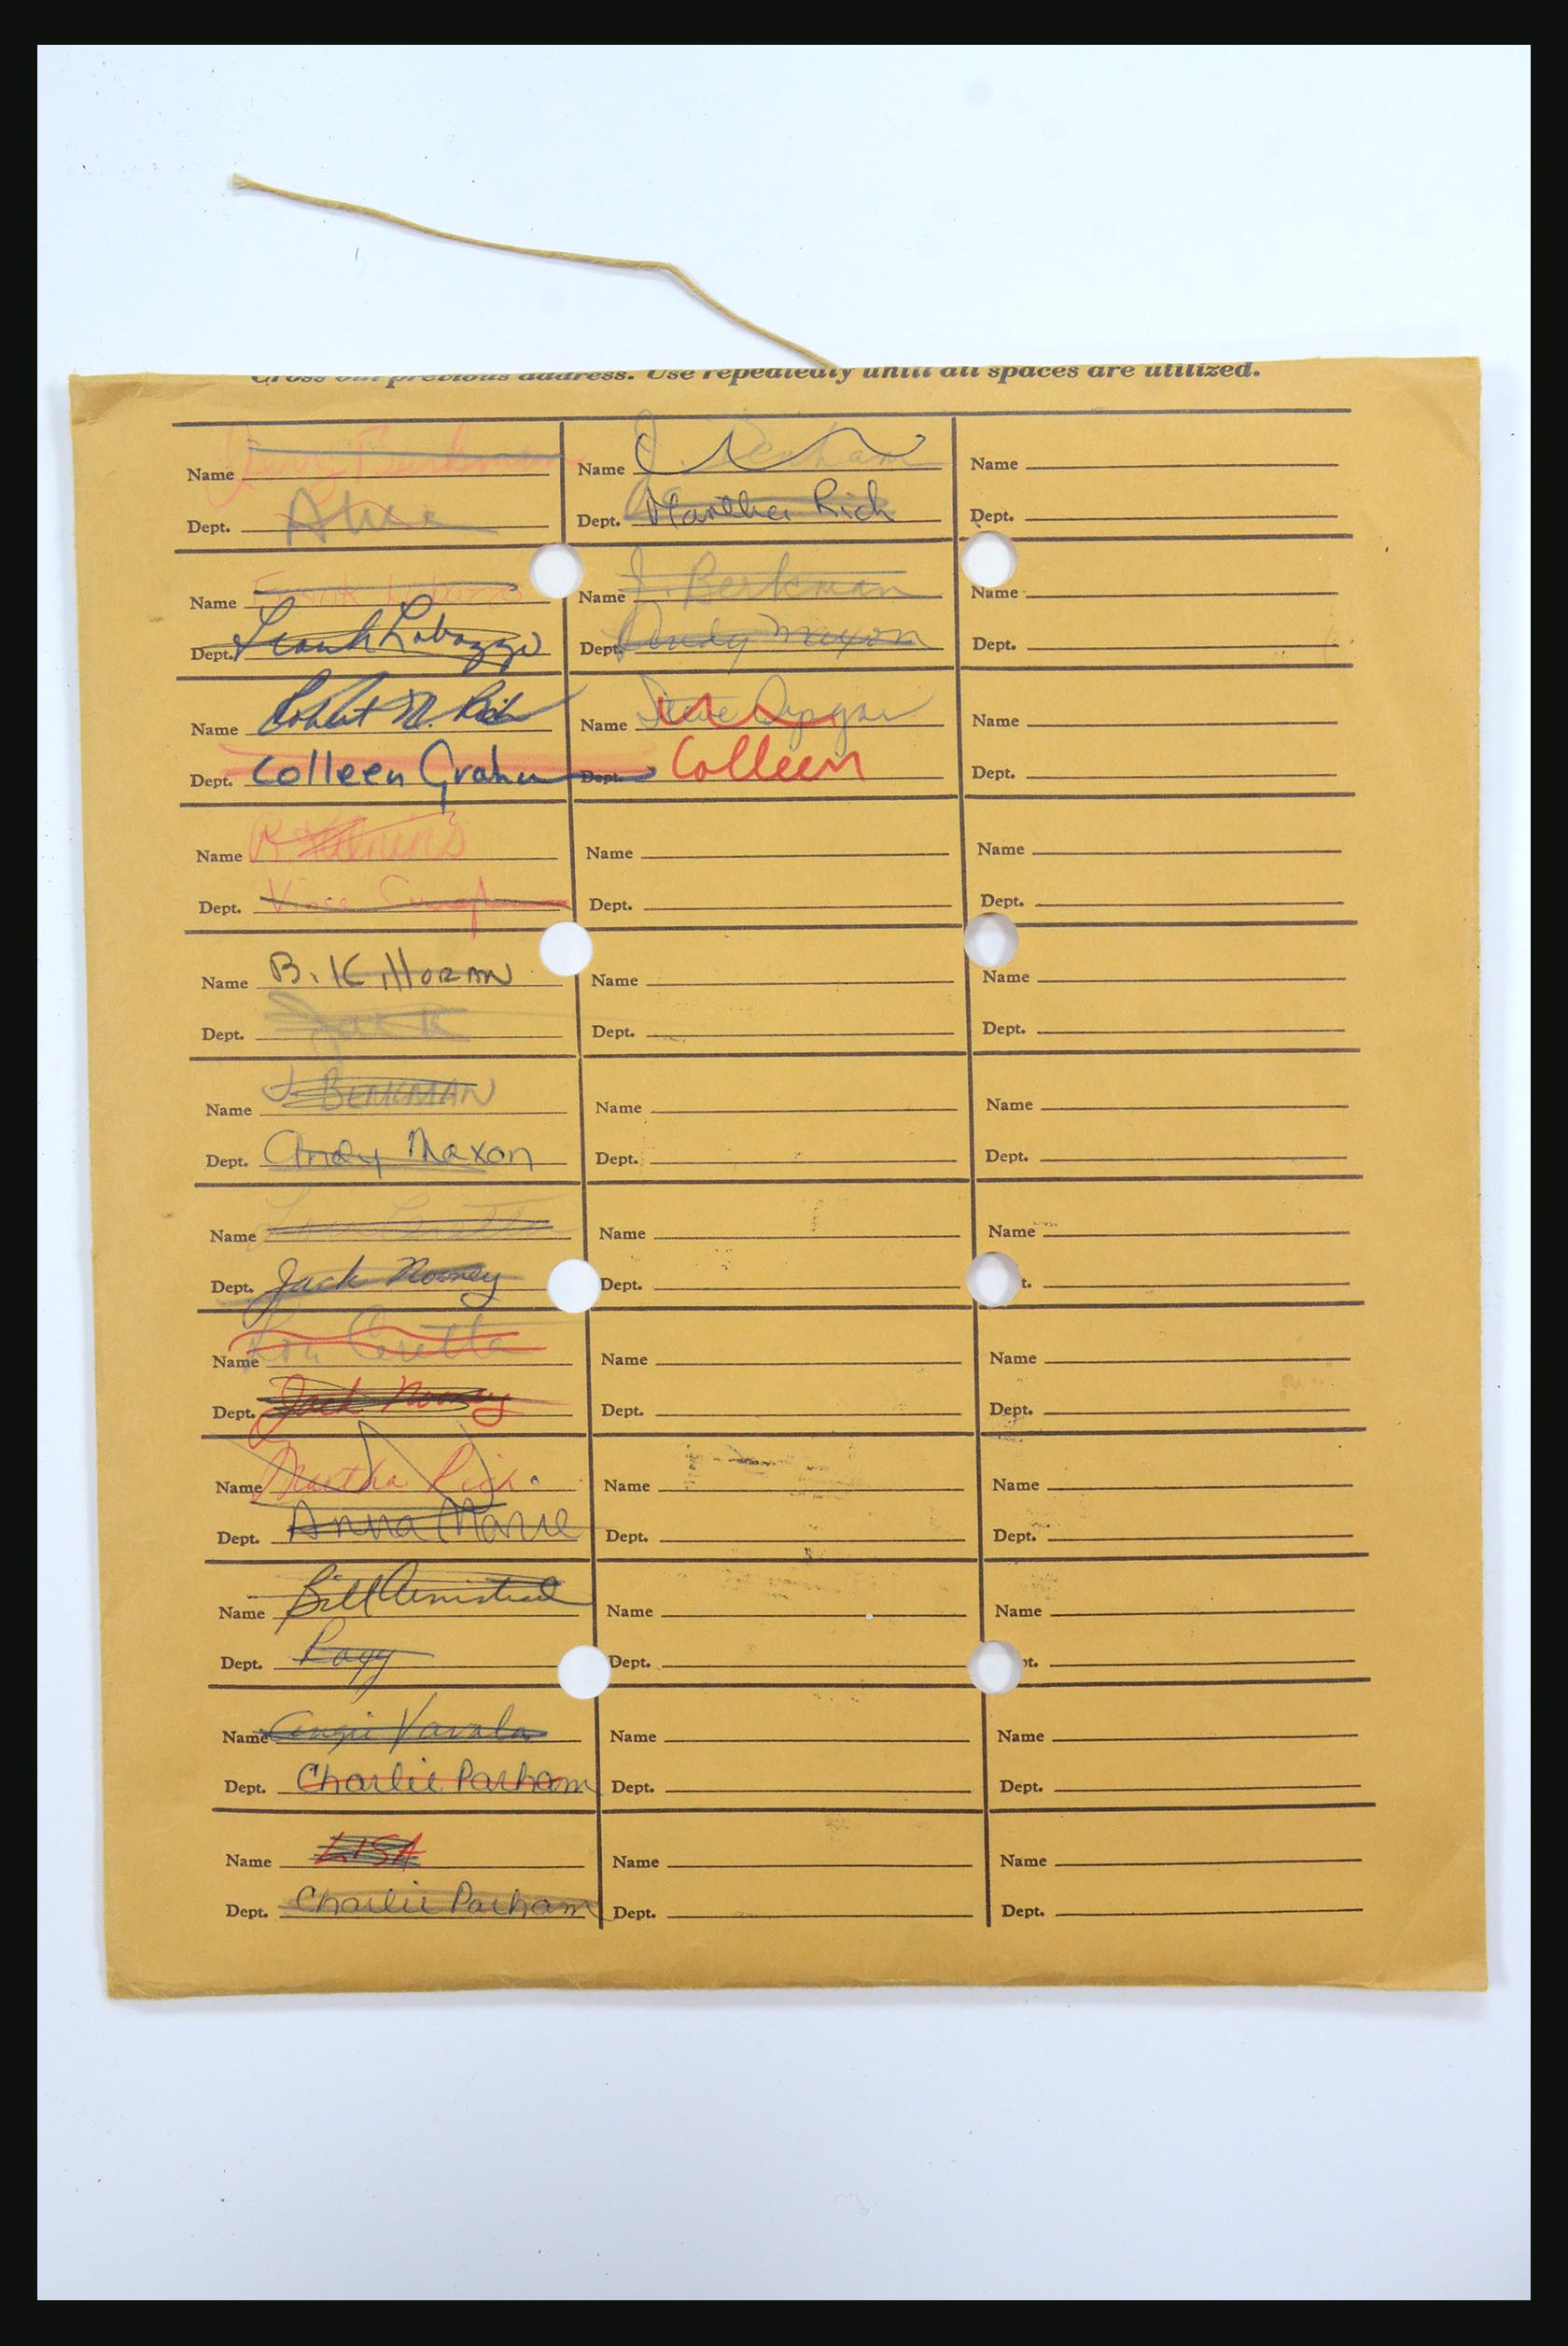 Cross out previous address. Use repeatedly until all spaces are utilized.
Name Jerry Berkman
Dept.
Name Frank Labozzo
Dept. Frank Labozzo
Name Robert M. Rich
Dept. Colleen Graham
Name
Dept. Vince
Name B. Killoran
Dept. Jack
Name J. BERKMAN
Dept. Andy Maxon
Name Lou Ceretta
Dept. Jack Nooney
Name Lou Ceretta
Dept. Jack Nooney
Name Martha Rich
Dept. Anna Marie
Name Bill Armistead
Dept.
Name Angie Varala
Dept. Charlie Parham
Name LISA
Dept. Charlie Parham
Name J. Denham
Dept. Martha Rich
Name J. Berkman
Dept. Andy Maxon
Name Steve Apgar
Dept. Colleen
Name
Dept.
Name
Dept.
Name
Dept.
Name
Dept.
Name
Dept.
Name
Dept.
Name
Dept.
Name
Dept.
Name
Dept.
Name
Dept.
Name
Dept.
Name
Dept.
Name
Dept.
Name
Dept.
Name
Dept.
Name
t.
Name
Dept.
Name
Dept.
Name
pt.
Name
Dept.
Name
Dept.